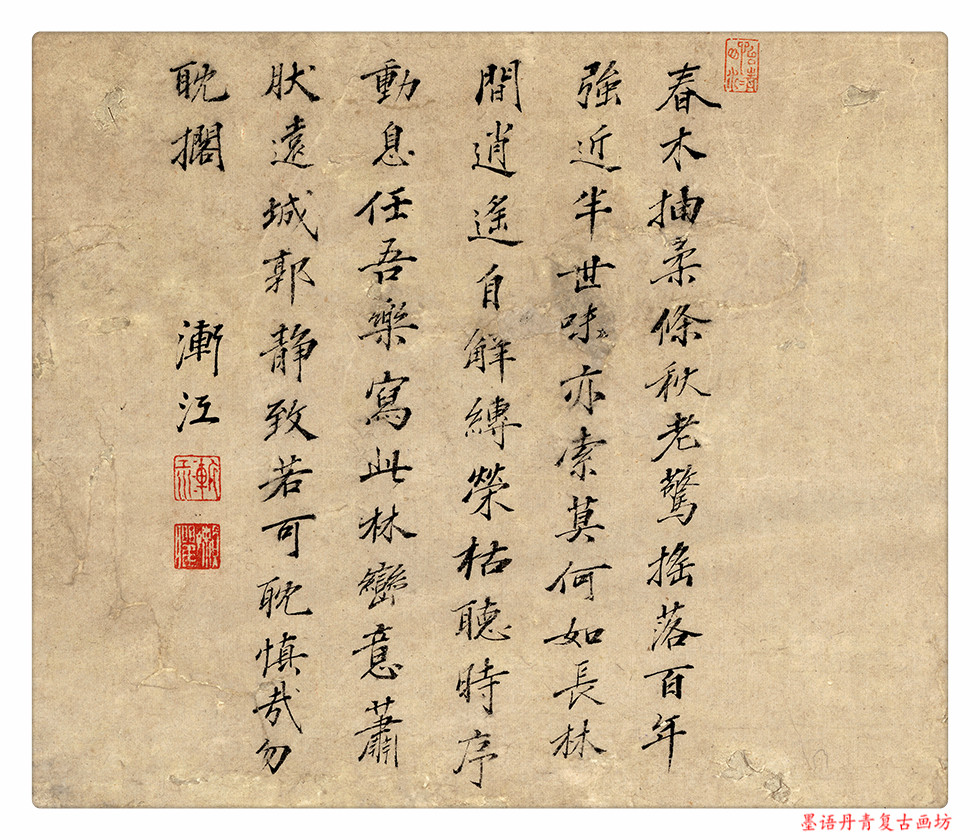 春木抽柔條秋老驚搖落百年
強近半世味亦索莫何如長林
間逍遙自解縛榮枯聽時序
動息任吾樂寫此林巒意蕭
狀遠城郭静致若可耽慎哉勿
耽擱
漸江
墨语丹青复古画坊